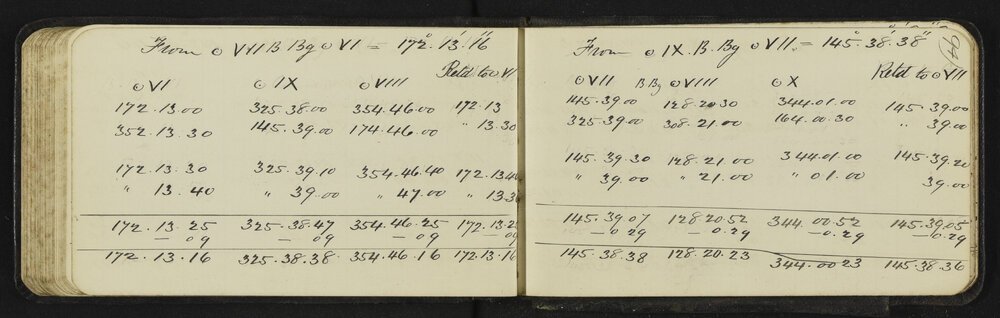 From ⊙ VII B Bg ⊙ VI = 172°.13'.16"
Retd to ⊙ VI
⊙ VI ⊙ IX ⊙ VIII
172.13.00 325.38.00 354.46.00 172.13
352.13.30 145.39.00 174.46.00 " 13.30
172.13.30 325.39.10 354.46.40 172.13.40
" 13.40 " 39.00 " 47.00 " 13.30
172.13.25 325.38.47 354.46.25 172.13.25
— 09 — 09 — 09 — 09
172.13.16 325.38.38 354.46.16 172.13.16
94
From ⊙ IX. B. Bg ⊙ VII. = 145°.38'.38"
Retd to ⊙ VII
⊙ VII B Bg ⊙ VIII ⊙ X
145.39.00 128.20.30 344.01.00 145.39.00
325.39.00 308.21.00 164.00.30 " 39.00
145.39.30 128.21.00 344.01.00 145.39.20
" 39.00 " 21.00 " 01.00 39.00
145.39.07 128.20.52 344.00.52 145.39.05
—0.29 —0.29 —0.29 —0.29
145.38.38 128.20.23 344.00 23 145.38.36